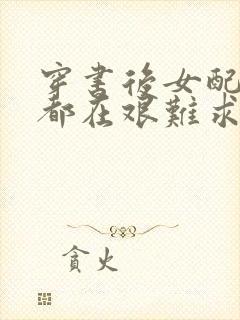 穿書後女配
都在艱難求
貪火